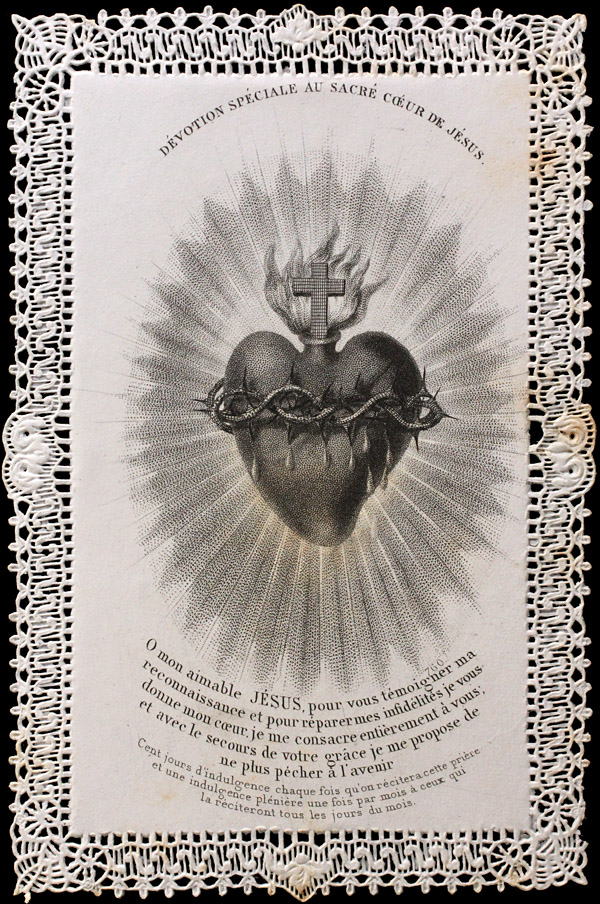 DÉVOTION SPÉCIALE AU SACRÉ CŒUR DE JÉSUS.
O mon aimable JÉSUS, pour vous témoigner ma
reconnaissance et pour réparer mes infidelités je vous
donne mon cœur, je me consacre entièrement à vous;
et avec le secours de votre grâce je me propose de
ne plus pécher à l'avenir
Cent jours d'indulgence chaque fois qu'on récitera cette prière
et une indulgence plénière une fois par mois à ceux qui
la réciteront tous les jours du mois.